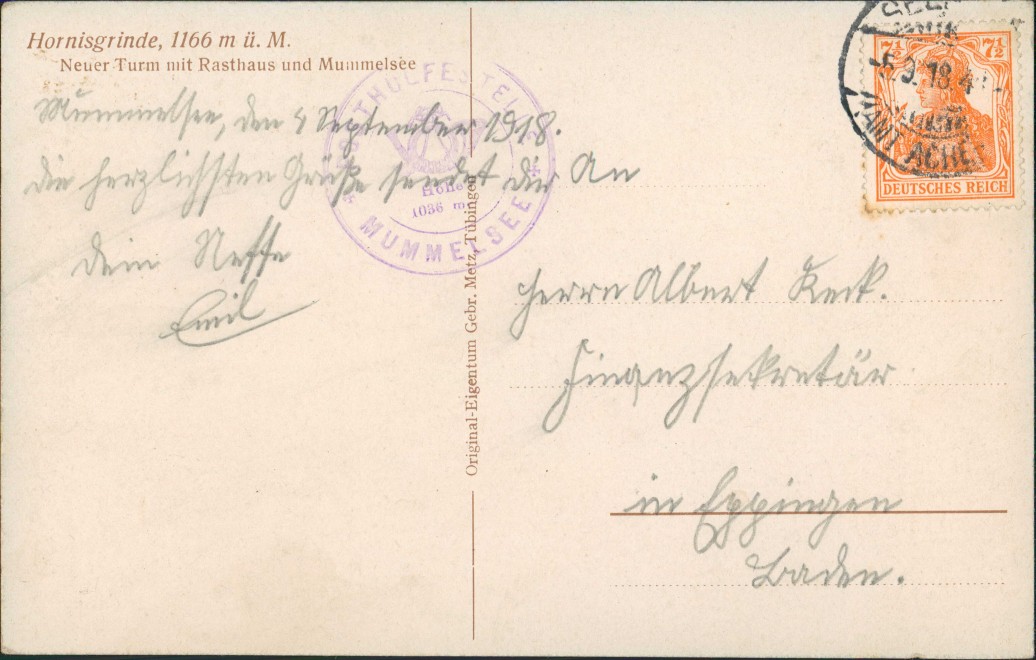 Hornisgrinde, 1166 m ü. M.
Neuer Turm mit Rasthaus und Mummelsee
Mummelsee, den 4 September 1918.
die herzlichsten Grüße sendet dir
dein Neffe
Emil
POSTHÜLFESTELLE
Höhe
1036 m
MUMMELSEE
Original-Eigentum Gebr. Metz, Tübingen
7½ 7½
DEUTSCHES REICH
AMT ACHE
An
Herrn Albert Keck.
Finanzsekretär
in Eppingen
Baden.